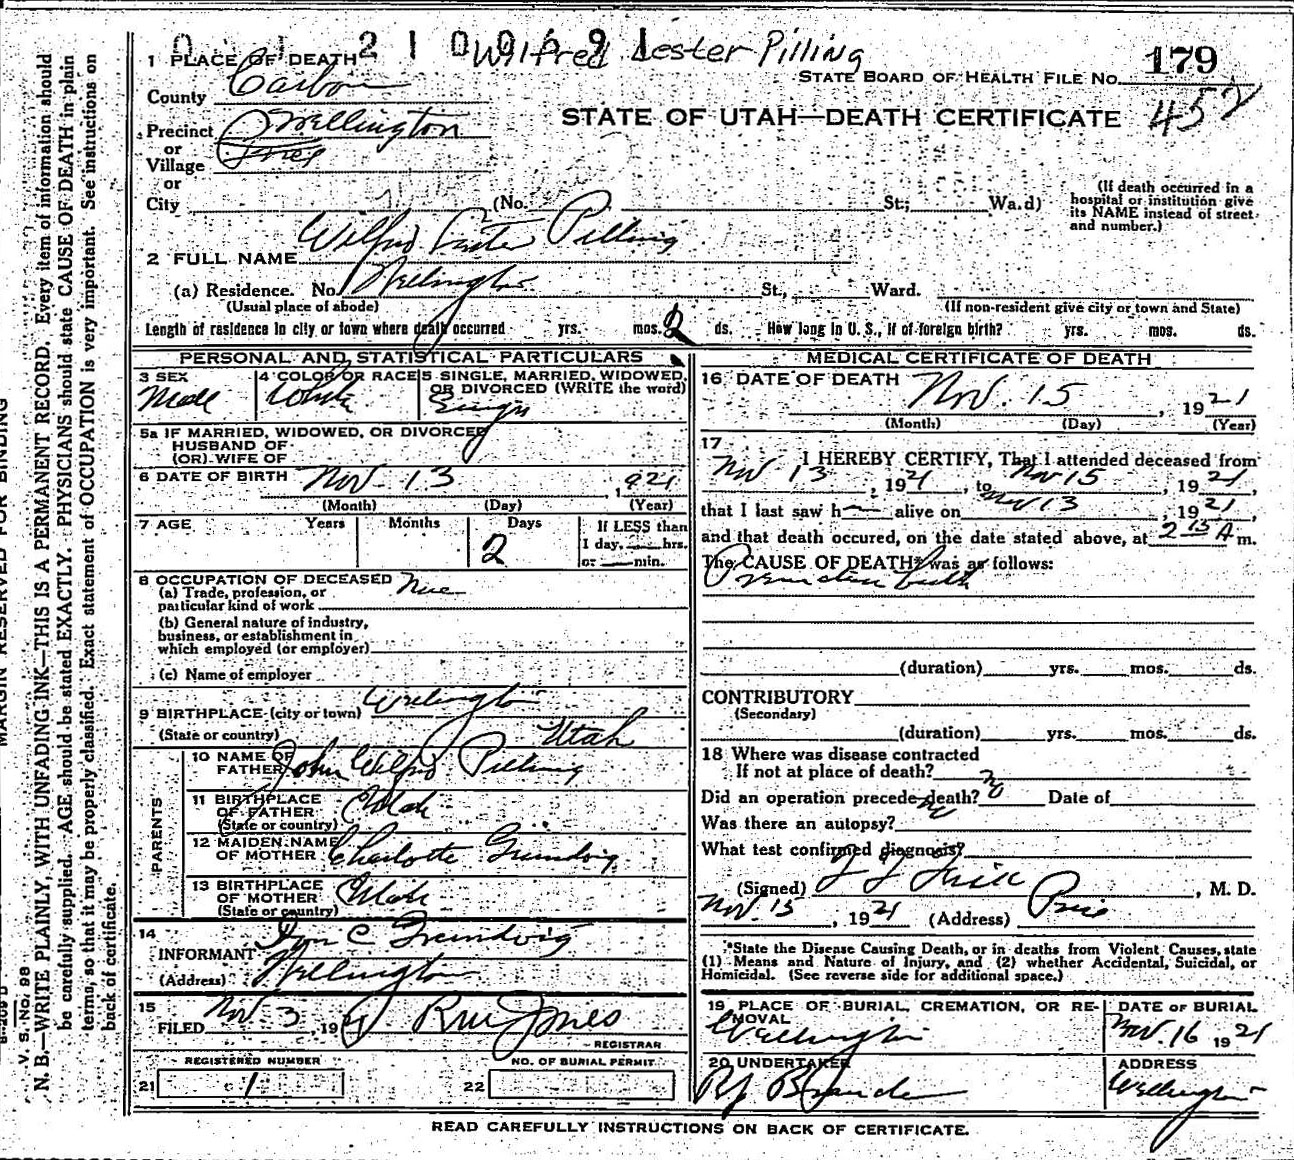 Wilfred Lester Pilling
1 PLACE OF DEATH 2 1 0 0
179
STATE BOARD OF HEALTH FILE No.
County Carbon
STATE OF UTAH—DEATH CERTIFICATE 452
Precinct Wellington
or
Village Price
or
City (No. St; Wa.d)
(If death occurred in a hospital or institution give its NAME instead of street and number.)
2 FULL NAME Wilfred Lester Pilling
(a) Residence. No. Wellington St., Ward.
(Usual place of abode) (If non-resident give city or town and State)
Length of residence in city or town where death occurred yrs. mos. 2 ds. How long in U. S., if of foreign birth? yrs. mos. ds.
PERSONAL AND STATISTICAL PARTICULARS
3 SEX Male
4 COLOR OR RACE White
5 SINGLE, MARRIED, WIDOWED, OR DIVORCED (WRITE the word) Single
5a IF MARRIED, WIDOWED, OR DIVORCED
HUSBAND OF
(OR) WIFE OF
6 DATE OF BIRTH Nov. 13, 1921
(Month) (Day) (Year)
7 AGE Years Months Days 2
If LESS than
1 day, hrs.
or min.
8 OCCUPATION OF DECEASED
(a) Trade, profession, or
particular kind of work
(b) General nature of industry,
business, or establishment in
which employed (or employer)
(c) Name of employer
9 BIRTHPLACE (city or town) Wellington
(State or country) Utah
PARENTS
10 NAME OF FATHER John Wilfred Pilling
11 BIRTHPLACE OF FATHER (State or country) Utah
12 MAIDEN NAME OF MOTHER Charlotte Grundvig
13 BIRTHPLACE OF MOTHER (State or country) Utah
14
INFORMANT C Grundvig
(Address) Wellington
15
FILED Nov. 3, 19 Jones
REGISTRAR
REGISTERED NUMBER NO. OF BURIAL PERMIT
21 1 22
MEDICAL CERTIFICATE OF DEATH
16 DATE OF DEATH Nov. 15, 1921
(Month) (Day) (Year)
17 I HEREBY CERTIFY, That I attended deceased from
Nov 13, 1921, to Nov 15, 1921,
that I last saw h alive on Nov 13, 1921,
and that death occured, on the date stated above, at 2 15 A m.
The CAUSE OF DEATH* was as follows:
Premature birth
(duration) yrs. mos. ds.
CONTRIBUTORY
(Secondary)
(duration) yrs. mos. ds.
18 Where was disease contracted
If not at place of death?
Did an operation precede death? no Date of
Was there an autopsy? no
What test confirmed diagnosis?
(Signed) , M. D.
Nov. 15, 1921 (Address) Price
*State the Disease Causing Death, or in deaths from Violent Causes, state
(1) Means and Nature of Injury, and (2) whether Accidental, Suicidal, or
Homicidal. (See reverse side for additional space.)
19 PLACE OF BURIAL, CREMATION, OR REMOVAL Wellington
DATE OF BURIAL Nov. 16 1921
20 UNDERTAKER
ADDRESS Wellington
READ CAREFULLY INSTRUCTIONS ON BACK OF CERTIFICATE.
MARGIN RESERVED FOR BINDING
V. S. No. 98
N. B.—WRITE PLAINLY, WITH UNFADING INK—THIS IS A PERMANENT RECORD. Every item of information should
be carefully supplied. AGE should be stated EXACTLY. PHYSICIANS should state CAUSE OF DEATH in plain
terms, so that it may be properly classified. Exact statement of OCCUPATION is very important. See instructions on
back of certificate.